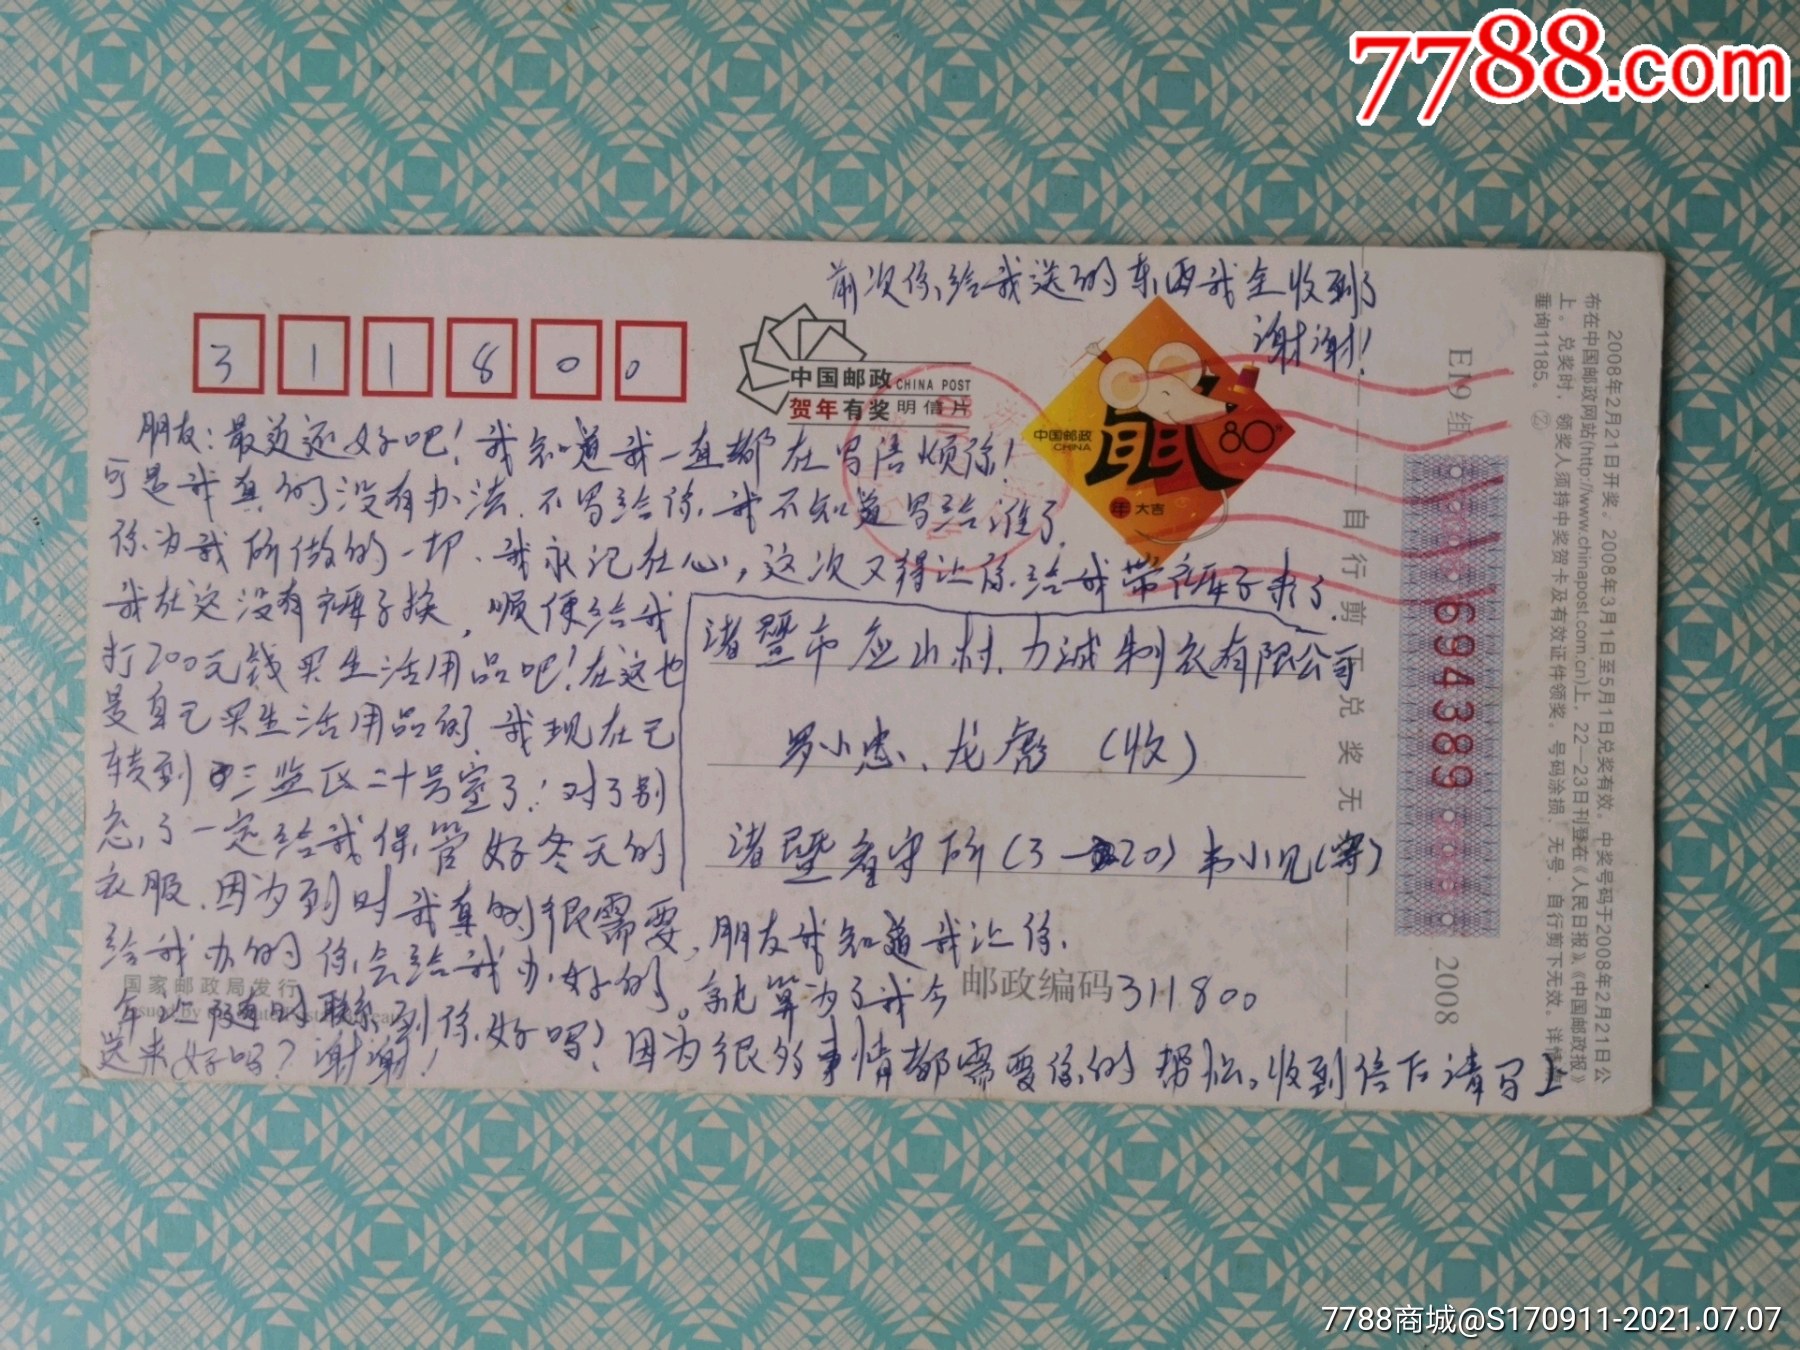 7788.com
前次你给我送的东西我全收到了
谢谢!
311800
中国邮政 CHINA POST
贺年有奖明信片
中国邮政
CHINA
鼠
80分
年大吉
朋友:最近还好吧!我知道我一直都在写信烦你!
可是我真的没有办法.不写给你.我不知道写给谁了.
你为我所做的一切.我永记在心,这次又得让你给我带裤子来了.
我在这没有裤子换,顺便给我
打200元钱买生活用品吧!在这也
是自己买生活用品的.我现在已
转到三监区二十号室了!对了别
忘了一定给我保管好冬天的
衣服.因为到时我真的很需要,朋友我知道我让你.
给我办的你会给我办好的。就算为了我今
年让随时联系到你好吗?因为很多事情都需要你的帮忙。收到信后请写上
送来好吗?谢谢!
诸暨市应山村.力诚制衣有限公司
罗小忠、龙彪(收)
诸暨看守所(3—20)韦小兄(寄)
邮政编码311800
国家邮政局发行
自行剪下兑奖无
E19组
694389
2008
2008年2月21日开奖。2008年3月1日至5月1日兑奖有效。中奖号码于2008年2月21日公
布在中国邮政网站(http://www.chinapost.com.cn)上,22—23日刊登在《人民日报》、《中国邮政报》
上。兑奖时,领奖人须持中奖贺卡及有效证件领奖。号码涂损、无号、自行剪下无效。详情
垂询11185。 ②
7788商城@S170911-2021.07.07